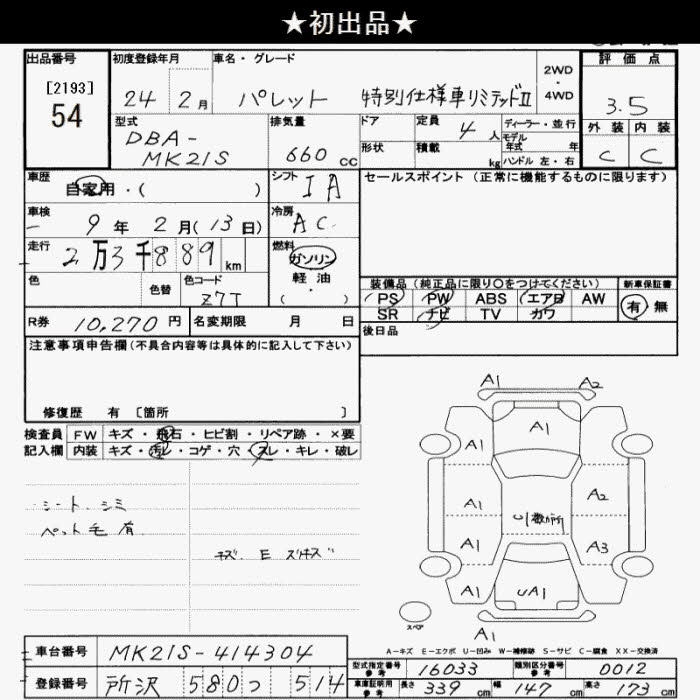 ★初出品★
出品番号 初度登録年月 車名・グレード 2WD・4WD 評価点
[2193]
54
24 2月 パレット 特別仕様車リミテッドⅡ 3.5
型式 排気量 ドア 定員 4人 ディーラー・並行 外装 内装
DBA-
MK21S 660cc 形状 積載 kg モデル年式 年 ハンドル 左・右 C C
車歴 自家用・( ) シフト IA セールスポイント(正常に機能するものに限ります)
車検 9年2月(13日) 冷房 AC
走行 2万3千889km 燃料 ガソリン
軽油
・
( )
色 色替 色コード Z7T 装備品(純正品に限り〇をつけてください) 新車保証書
PS PW ABS エアB AW 有・無
SR ナビ TV カワ
R券 10,270円 名変期限 月 日 後日品
注意事項申告欄(不具合内容等は具体的に記入して下さい)
修復歴 有 [箇所 ]
検査員 FW キズ・飛石・ヒビ割・リペア跡・×要
記入欄 内装 キズ・汚レ・コゲ・穴・スレ・キレ・破レ
シート シミ
ペット毛有
A1 A2
A1 A1
A1 A2
U1数か所
A1 A3
A1 UA1
スペア
A-キズ E-エクボ U-凹み W-補修跡 S-サビ C-腐食 XX-交換済
車台番号 MK21S-414304
型式指定番号 参考 16033 類別区分番号 参考 0012
登録番号 所沢 580 つ 514
車庫証明用 参考 長さ 339cm 幅 147cm 高さ 173cm